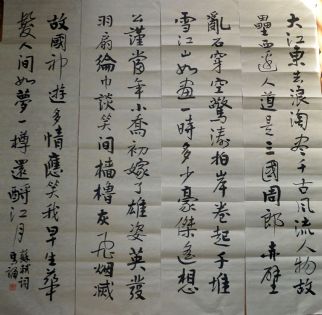 大江東去浪淘盡千古風流人物故
壘西邊人道是三國周郎赤壁
亂石穿空驚濤拍岸卷起千堆
雪江山如畫一時多少豪傑遙想
公謹當年小喬初嫁了雄姿英發
羽扇綸巾談笑间檣櫓灰飞烟滅
故國神遊多情應笑我早生華
髮人间如夢一樽還酹江月
蘇軾詞